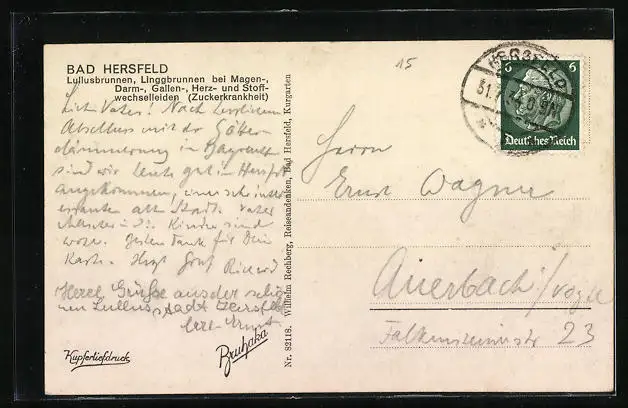 BAD HERSFELD
Lullusbrunnen, Linggbrunnen bei Magen-,
Darm-, Gallen-, Herz- und Stoff-
wechselleiden (Zuckerkrankheit)
Vater! Nach
Abschluss mit der Götter-
dämmerung in Bayreuth
sind wir heute gut in Hersfeld
angekommen, einer sehr inter
essanten alten Stadt. Vater
Kinder sind
wohl. Dank für Dein
Karte. Herzl Gruß
Herzl. Grüße aus der schö
nen Lullusstadt Hersfeld
Kupfertiefdruck
Bruhaka
Nr. 82118. Wilhelm Rechberg, Reiseandenken, Bad Hersfeld, Kurgarten
15
HERSFELD
31.7.34
6 6
Deutsches Reich
Herrn
Ernst Wagner
Auerbach i/Vogtl
Falkensteinerstr 23